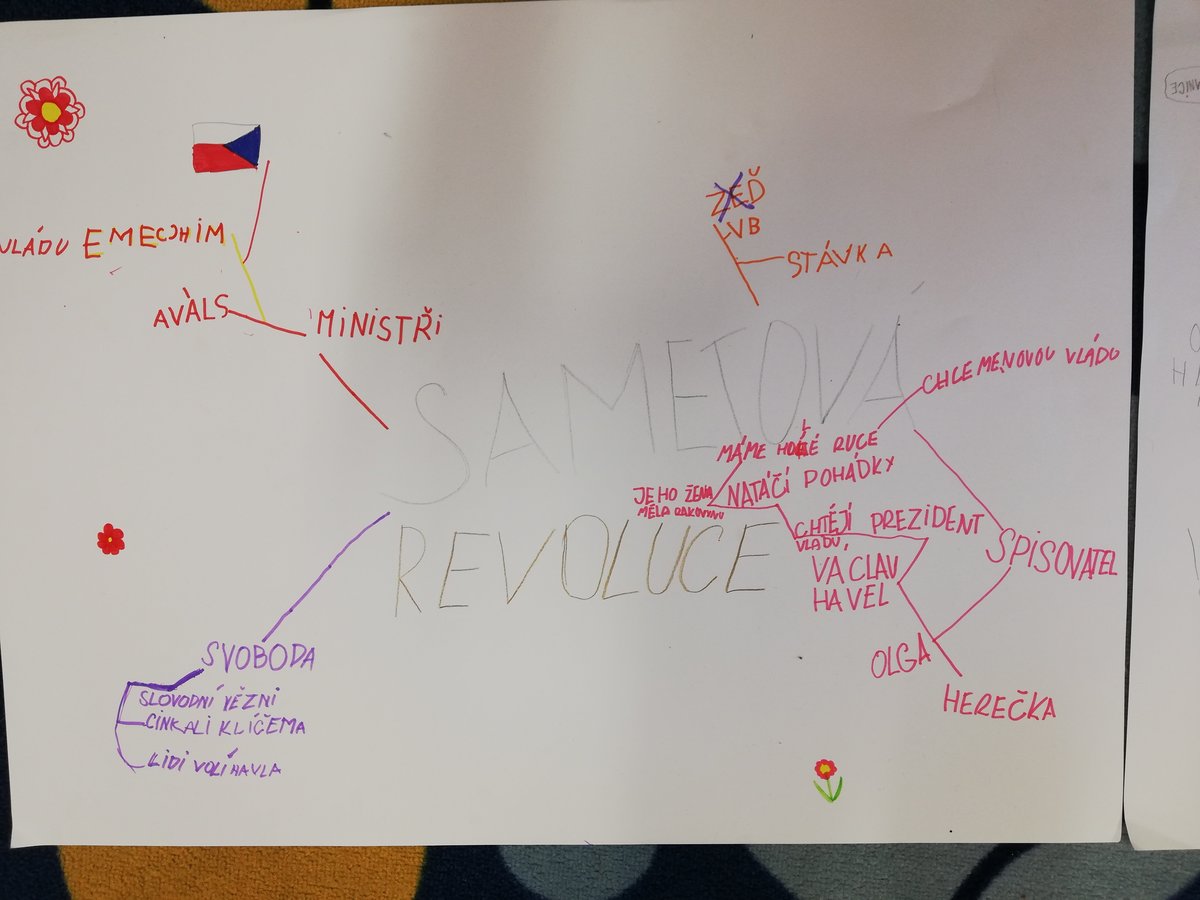 VLÁDU EMECHIM
AVÀLS
MINISTŘI
ZEĎ
VB
STÁVKA
SAMETOVA
REVOLUCE
CHCEME NOVOU VLÁDU
MÁME HOLÉ RUCE
JEHO ŽENA
MĚLA RAKOVINU
NATÁČÍ POHÁDKY
CHTĚJÍ PREZIDENT
VLADU,
VACLAV
HAVEL
SPISOVATEL
OLGA
HEREČKA
SVOBODA
SLOVODNÍ VĚZNI
CINKALI KLÍČEMA
LIDI VOLÍ HAVLA